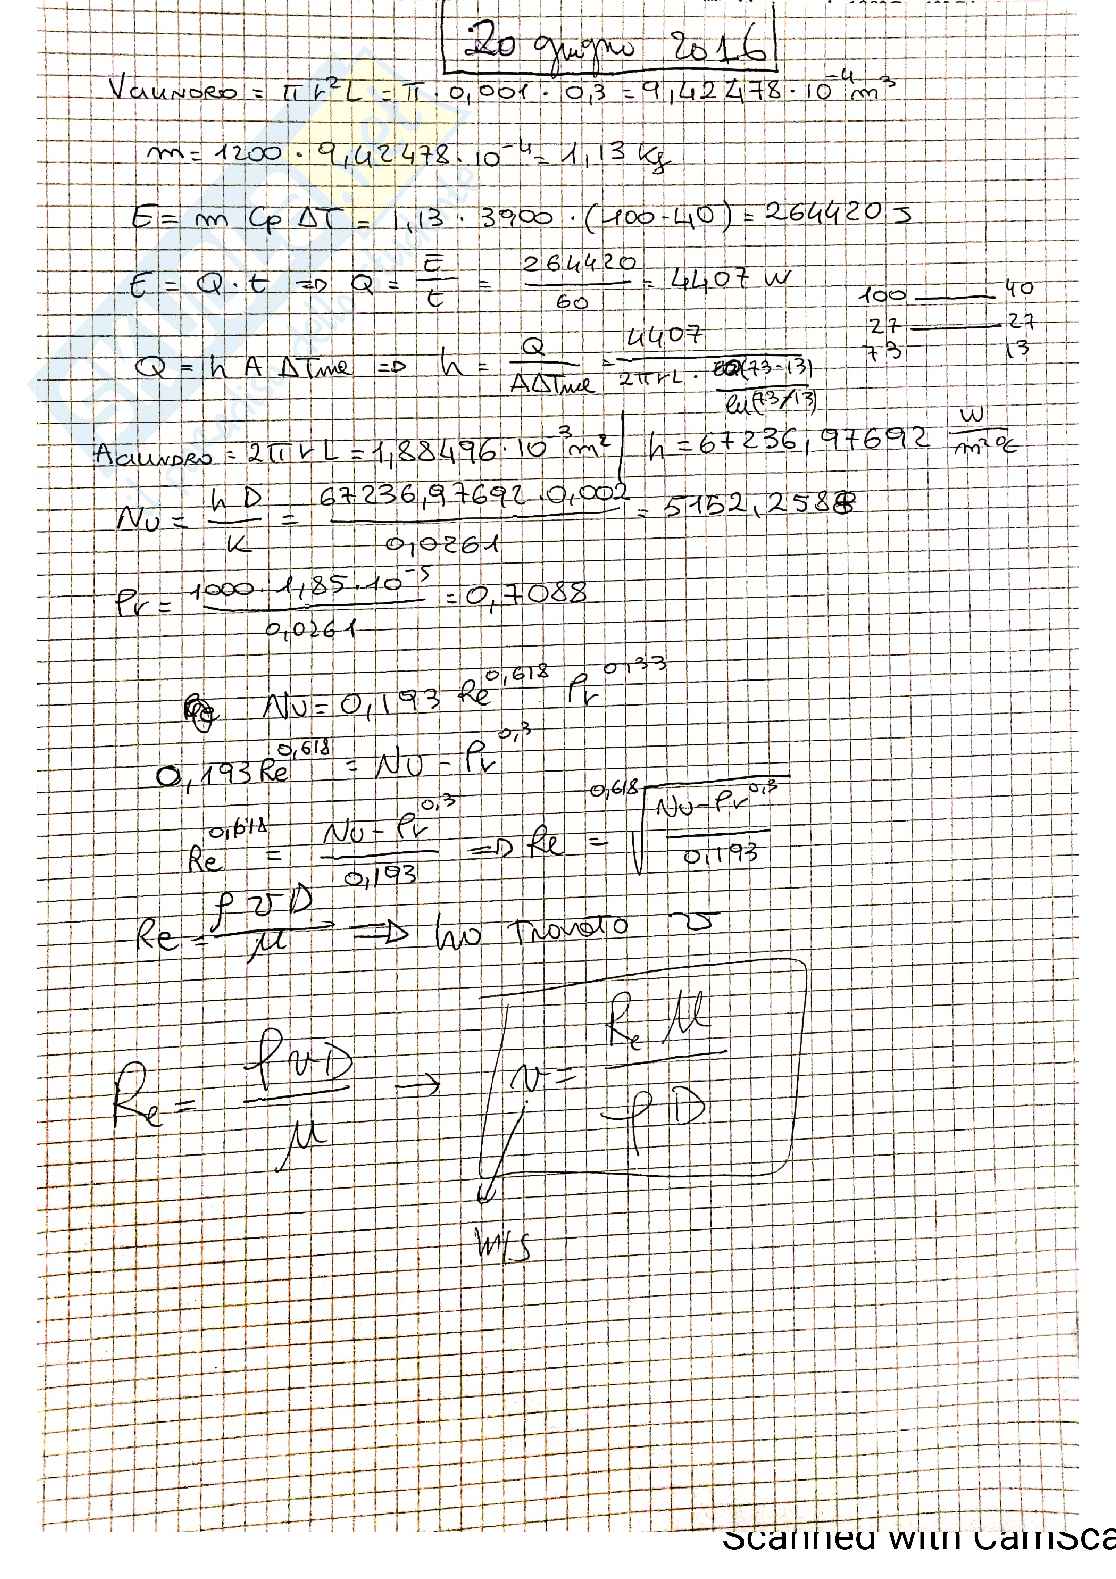 20 giugno 2016
VCILINDRO = π r² L = π · 0,001 · 0,3 = 9,42478 · 10⁻⁴ m³
m = 1200 · 9,42478 · 10⁻⁴ = 1,13 kg
E = m Cp ΔT = 1,13 · 3900 · (100-40) = 264420 J
E = Q · t ⇒ Q = E/t = 264420/60 = 4407 W
100 —— 40
27 —— 27
73 —— 13
Q = h A ΔTme ⇒ h = Q/(A ΔTme) = 4407/(2πrL · (73-13)/ln(73/13))
ACILINDRO = 2πrL = 1,88496 · 10⁻³ m² | h = 67236,97692 W/m²°C
Nu = hD/K = 67236,97692 · 0,002/0,0261 = 5152,258
Pr = 1000 · 1,85 · 10⁻⁵/0,0261 = 0,7088
Nu = 0,193 Re^0,618 Pr^0,33
0,193 Re^0,618 = Nu - Pr^0,3
Re^0,618 = (Nu - Pr^0,3)/0,193 ⇒ Re = ^0,618√((Nu - Pr^0,3)/0,193)
Re = ρvD/μ ⇒ ho trovato v
Re = ρvD/μ → v = Re μ/ρD
m/s
Scanned with CamSca